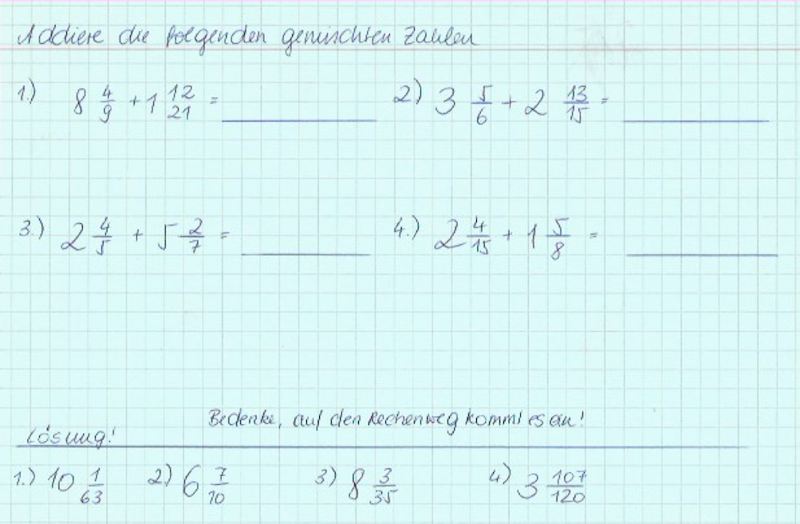 Addiere die folgenden gemischten Zahlen
1.) 8 4/9 + 1 12/21 = ________ 2.) 3 5/6 + 2 13/15 = ________
3.) 2 4/5 + 5 2/7 = ________ 4.) 2 4/15 + 1 5/8 = ________
Bedenke, auf den Rechenweg kommt es an!
Lösung!
1.) 10 1/63 2.) 6 7/10 3) 8 3/35 4) 3 107/120